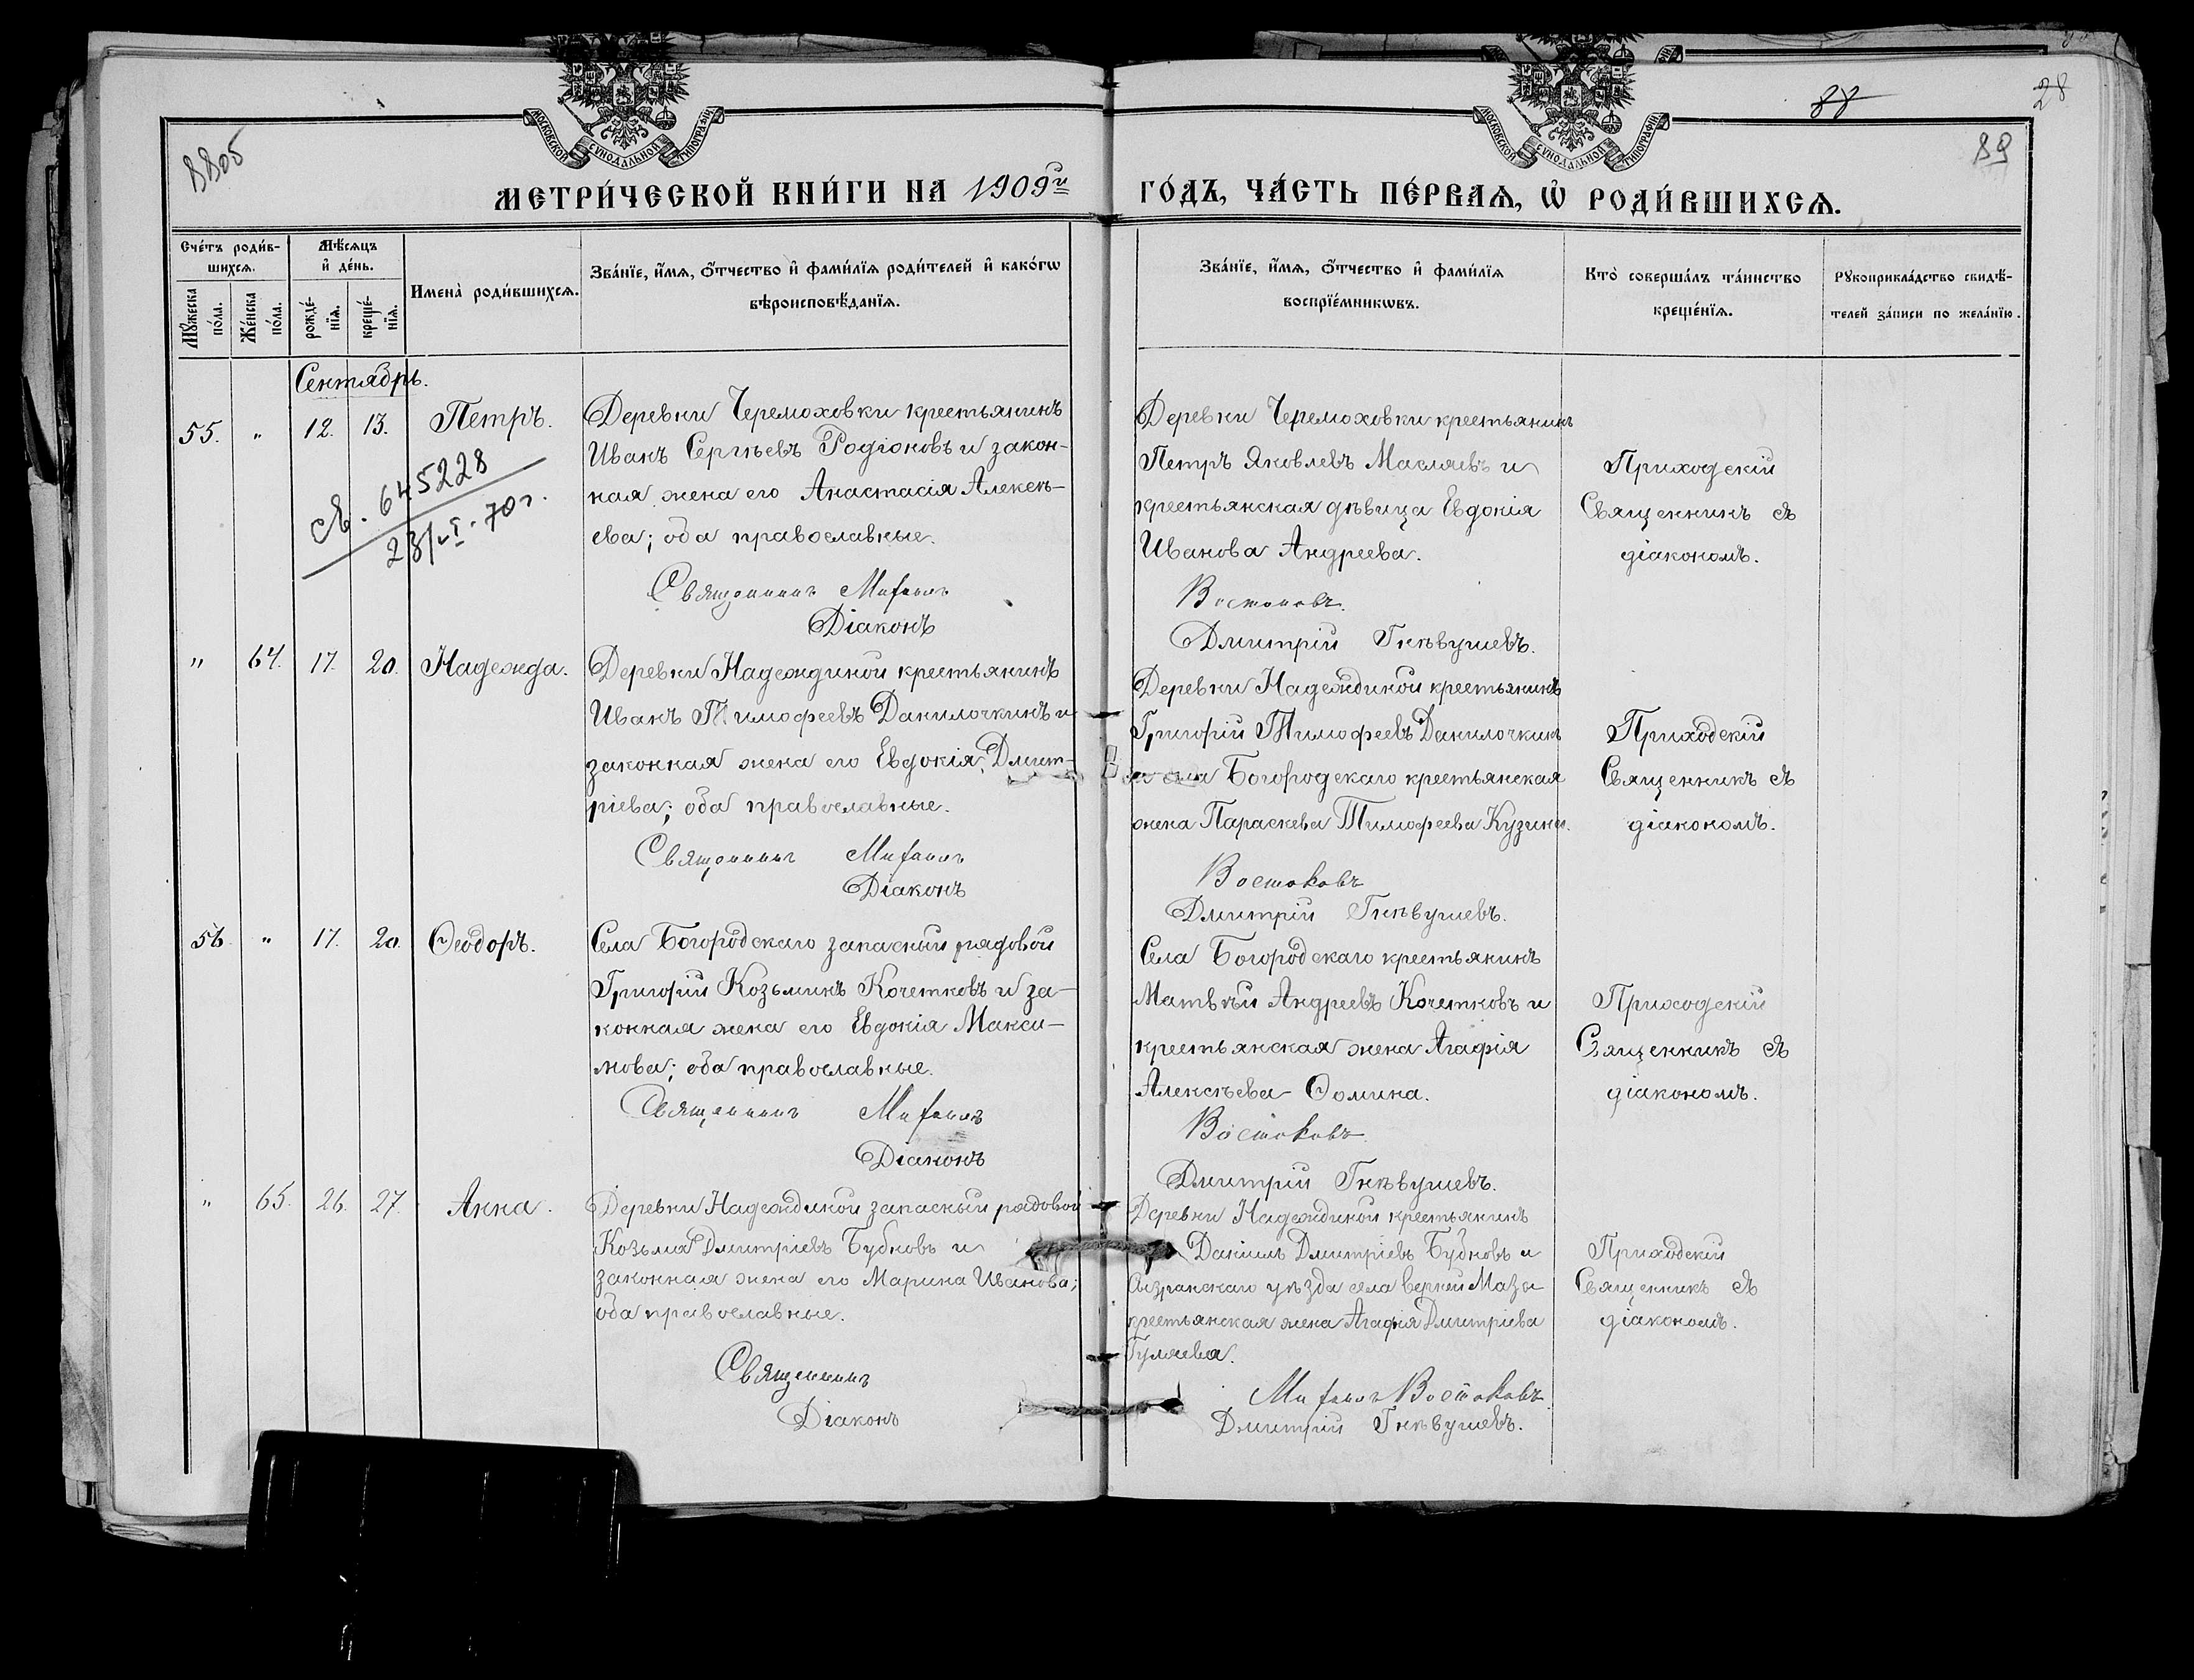 МОСКОВСКОЙ СѴНОДАЛЬНОЙ ТИПОГРАФІИ
МОСКОВСКОЙ СѴНОДАЛЬНОЙ ТИПОГРАФІИ
28
89
МЕТРИ́ЧЕСКОЙ КНИ́ГИ НА 1909й
ГО́ДЪ, ЧА́СТЬ ПЕ́РВАѦ, Ѡ҆ РОДИ́ВШИХСѦ.
Сче́тъ роди́в-
шихсѧ.
Мѣ́сѧцъ
и҆ де́нь.
Мꙋ́жеска
по́ла.
Же́нска
по́ла.
рожде́-
нїѧ.
креще́-
нїѧ.
Имена̀ роди́вшихсѧ.
Зва́нїе, и҆́мѧ, ѻ҆́тчество и҆ фами́лїѧ роди́телей и҆ како́гѡ
вѣроисповѣ́данїѧ.
Зва́нїе, и҆́мѧ, ѻ҆́тчество и҆ фами́лїѧ
воспрїе́мникѡвъ.
Кто̀ соверша́лъ та́инство
креще́нїѧ.
Рꙋкоприкла́дство свидѣ́-
телей за́писи по жела́нїю.
Сентябрь.
55. " 12. 13. Петръ.
св. 645228
Деревни Черемоховки крестьянинъ
Иванъ Сергѣевъ Родіоновъ и закон-
ная жена его Анастасія Алексѣ-
ева; оба православные.
Священникъ Михаилъ
Діаконъ
Деревни Черемоховки крестьянинъ
Петръ Яковлевъ Масляевъ и
крестьянская дѣвица Евдокія
Иванова Андреева.
Востоковъ.
Дмитрій Гнѣвушевъ.
Приходскій
Священникъ съ
діакономъ.
" 64. 17. 20. Надежда.
Деревни Надеждиной крестьянинъ
Иванъ Тимофеевъ Данилочкинъ и
законная жена его Евдокія Дмит-
ріева; оба православные.
Священникъ Михаилъ
Діаконъ
Деревни Надеждиной крестьянинъ
Григорій Тимофеевъ Данилочкинъ
и села Богородскаго крестьянская
жена Параскева Тимофеева Кузина.
Востоковъ
Дмитрій Гнѣвушевъ.
Приходскій
Священникъ съ
діакономъ.
56. " 17. 20. Ѳеодоръ.
Села Богородскаго запасный рядовой
Григорій Козьминъ Кочетковъ и за-
конная жена его Евдокія Макси-
мова; оба православные.
Священникъ Михаилъ
Діаконъ
Села Богородскаго крестьянинъ
Матвѣй Андреевъ Кочетковъ и
крестьянская жена Агафія
Алексѣева Ѳомина.
Востоковъ
Дмитрій Гнѣвушевъ.
Приходскій
Священникъ съ
діакономъ.
" 65. 26. 27. Анна.
Деревни Надеждиной запасный рядовой
Козьма Дмитріевъ Бубновъ и
законная жена его Марина Иванова;
оба православные.
Священникъ
Діаконъ
Деревни Надеждиной крестьянинъ
Даніилъ Дмитріевъ Бубновъ и
Сызранскаго уѣзда села Верхней Мазы
крестьянская жена Агафія Дмитріева
Гуляева.
Михаилъ Востоковъ.
Дмитрій Гнѣвушевъ.
Приходскій
Священникъ съ
діакономъ.